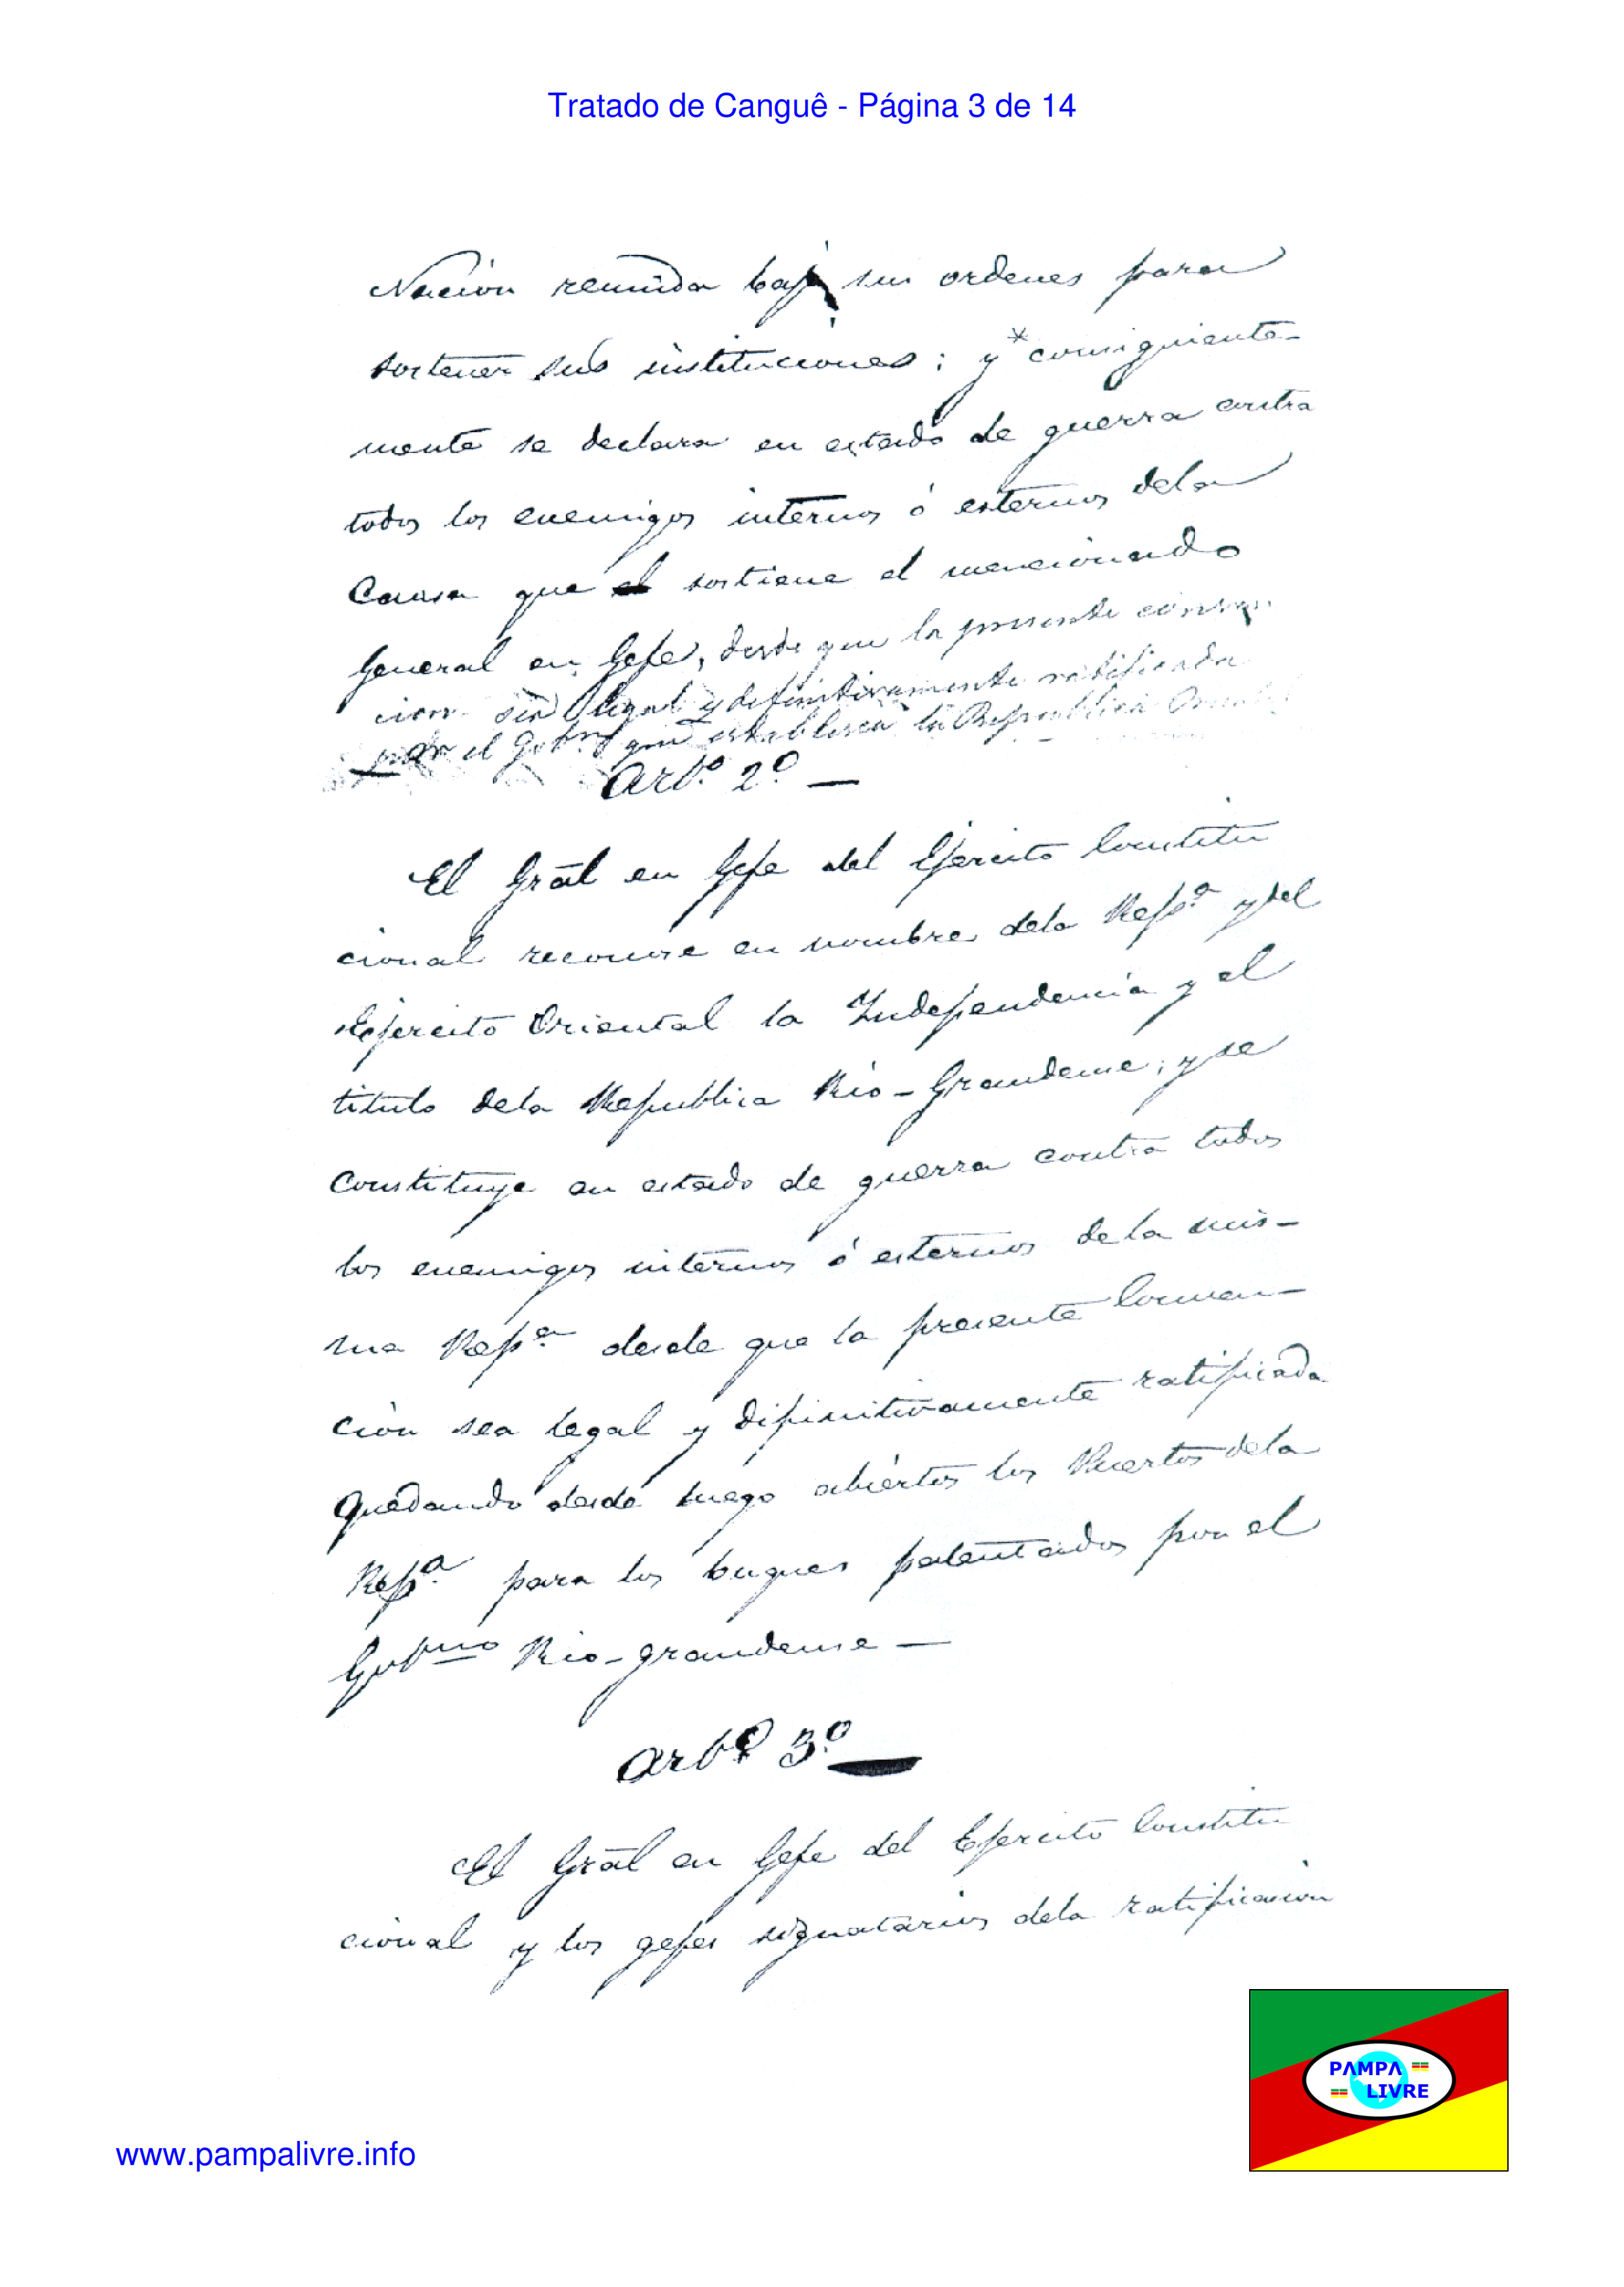 Tratado de Canguê - Página 3 de 14
Nación reunida bajo sus ordenes para
sortener sus instituciones; y* consiguiente-
mente se declara en estado de guerra contra
todos los enemigos internos ó esternos dela
Causa que sostiene el mencionado
General en Gefe, desde que la presente conven
cion sea legal y definitivamente ratificada
por el Gobno que establesca la Republica Oriental
Arto. 2º —
El Grāl en Gefe del Ejercito Constitu
cional reconose en nombre dela Repª y del
Ejercito Oriental la Independencia y el
titulo dela Republica Rio-Grandense; y se
Constituye en estado de guerra contra todos
los enemigos internos ó esternos de la mis-
ma Repª desde que la presente Conven-
ción sea legal y difinitivamente ratificada
quedando desde luego abiértos los Puertos dela
Repª. para los buques patentados por el
Gobierno Rio-grandense —
Artº 3º —
El Grāl en Gefe del Ejercito Constitu
cional y los gefes signatarios dela ratificacion
PAMPA
LIVRE
www.pampalivre.info